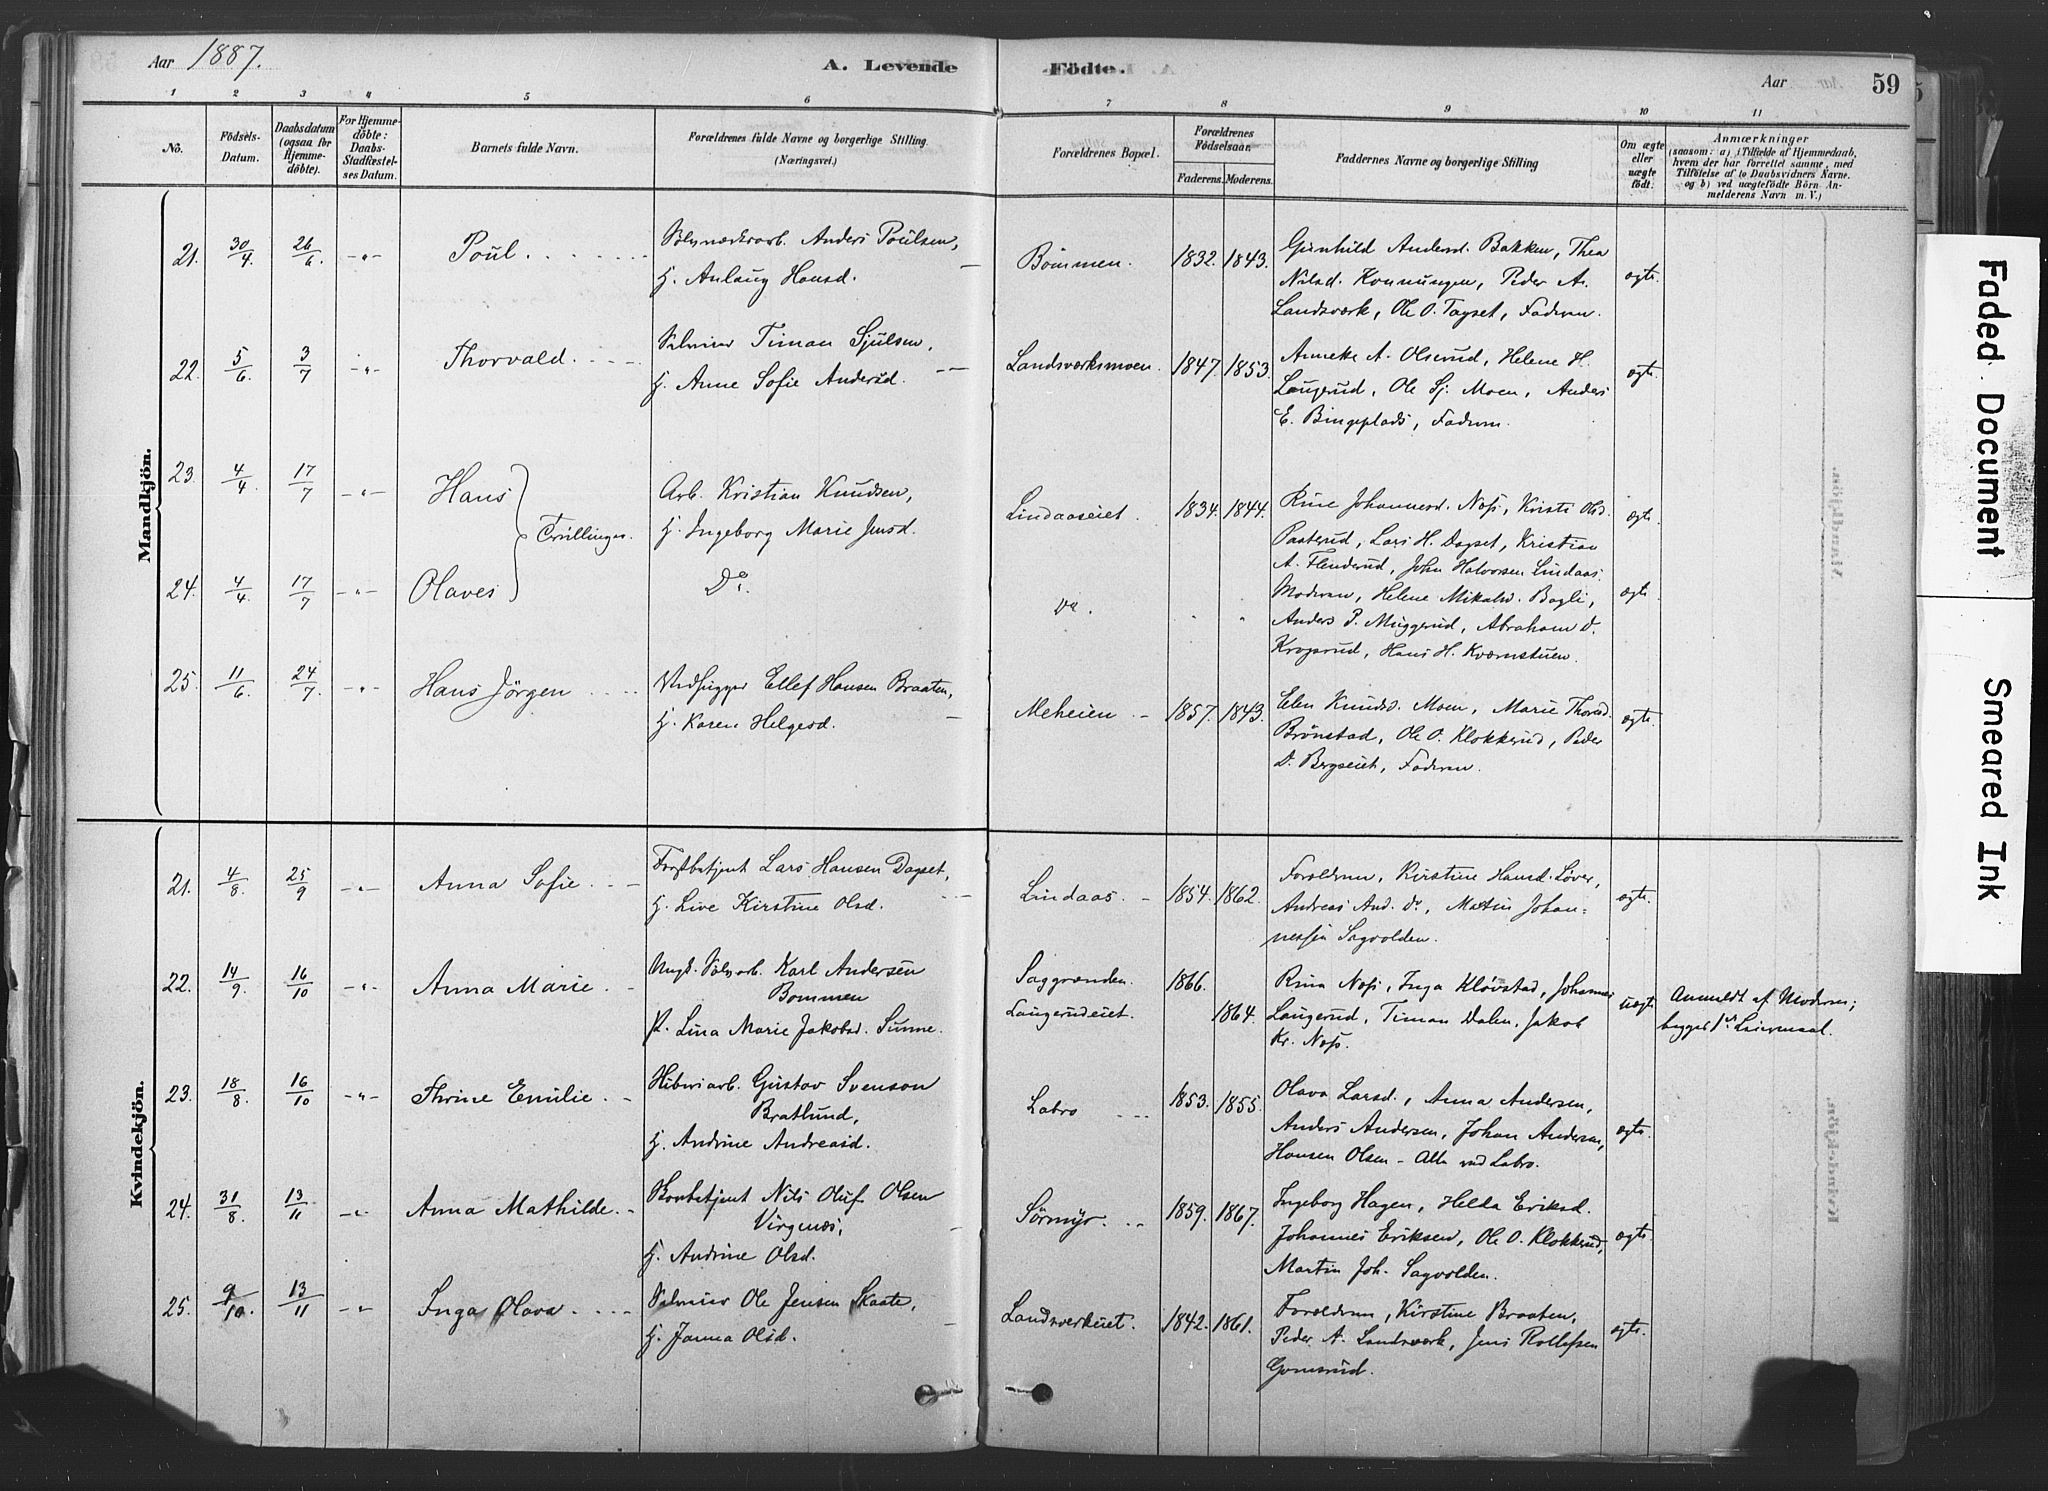 Aar 1887.
A. Levende Födte.
Aar
59
1 2 3 4 5 6 7 8 9 10 11
No.
Födsels-Datum.
Daabsdatum (ogsaa for Hjemmedöbte).
For Hjemmedöbte: Daabs-Stadfæstelses Datum.
Barnets fulde Navn.
Forældrenes fulde Navne og borgerlige Stilling. (Næringsvei.)
Forældrenes Bopæl.
Forældrenes Födselsaar.
Faderens. Moderens.
Faddernes Navne og borgerlige Stilling
Om ægte eller uægte födt.
Anmærkninger
(saasom: a) i Tilfælde af Hjemmedaab,
hvem der har forrettet samme, med
Tilföielse af to Daabsvidners Navne.
og b) ved uægtefödte Börn An-
melderens Navn m. V.)
Mandkjön.
21. 30/4 26/6 -"- Poul. Anders Poulsen,
H. Anlaug Hansd. Bommen. 1832. 1843. ægte.
Gunhild Andersd. Bakken, Thea
Nilsd. Konnungen, Peder A.
Landsværk, Ole O. Tagset, Faderen.
22. 5/6 3/7 -"- Thorvald. Timan Sjulsen,
H. Anne Sofie Andersd. Landsværksmoen. 1847. 1853. ægte.
Annette A. Olserud, Helene H.
Laugerud, Ole Sj. Moen, Anders
E. Bingeplads, Faderen.
23. 4/4 17/7 -"- Hans
Trillinger.
Arb. Kristian Knudsen,
H. Ingeborg Marie Jensd. Lindaaseiet. 1834. 1844. ægte.
Rine Johannesd. Nøss, Kirsti Olsd.
Paaterud, Lars H. Dagset, Kristian
A. Flenderud, John Halvorsen Lindaas.
24. 4/4 17/7 -"- Olaves Do. Do. " " ægte.
Moderen, Helene Mikalsd. Bøgli,
Anders P. Muggerud, Abraham D.
Krogsrud, Hans H. Kværnstuen.
25. 11/6 24/7 -"- Hans Jörgen Vedhugger Ellef Hansen Braaten,
H. Karen Helgesd. Meheien 1857. 1843. ægte.
Elen Knudsd. Moen, Marie Thorsd.
Brönstad, Ole O. Klokkerud, Peder
D. Bergseiet, Faderen.
Kvindekjön.
21. 4/8 25/9 -"- Anna Sofie. Forstbetjent Lars Hansen Dagset,
H. Live Kirstine Olsd. Lindaas. 1854. 1862. ægte.
Forældrene, Kirstine Hansd. Löver,
Andreas And. Do, Martin Johan=
nessen Sagvolden.
22. 14/9 16/10 -"- Anna Marie. Ungk. Sölvarb. Karl Andersen
Bommen
P. Lina Marie Jakobsd. Sunne. Saggrenden. 1866.
Laugerudeiet. 1864. uægte
Rina Nøss, Inga Klövstad, Johannes
Laugerud, Timan Dalen, Jakob
Kr. Nøss.
Anmeldt af Moderen;
begges 1ste Leiermaal.
23. 18/8 16/10 -"- Thrine Emilie. Gustav Svenson
Bratlund,
H. Andrine Andreasd. Labro 1853. 1855. ægte.
Olava Larsd., Anna Andersen,
Anders Andersen, Johan Andersen,
Hansen Olsen - Alle ved Labro.
24. 31/8 13/11 -"- Anna Mathilde. Nils Oluf Olsen
Virgenæs,
H. Andrine Olsd. Sörmyr. 1859. 1867. ægte.
Ingeborg Hagen, Helda Eriksd.
Johannes Eriksen, Ole O. Klokkerud,
Martin Joh. Sagvolden.
25. 9/10. 13/11 -"- Inga Olava Ole Jensen Skaate,
H. Janna Olsd. Landsverkeiet. 1842. 1861. ægte.
Forældrene, Kirstine Braaten,
Peder A. Landsværk, Jens Rollefsen
Gomsrud.
Faded Document
Smeared Ink